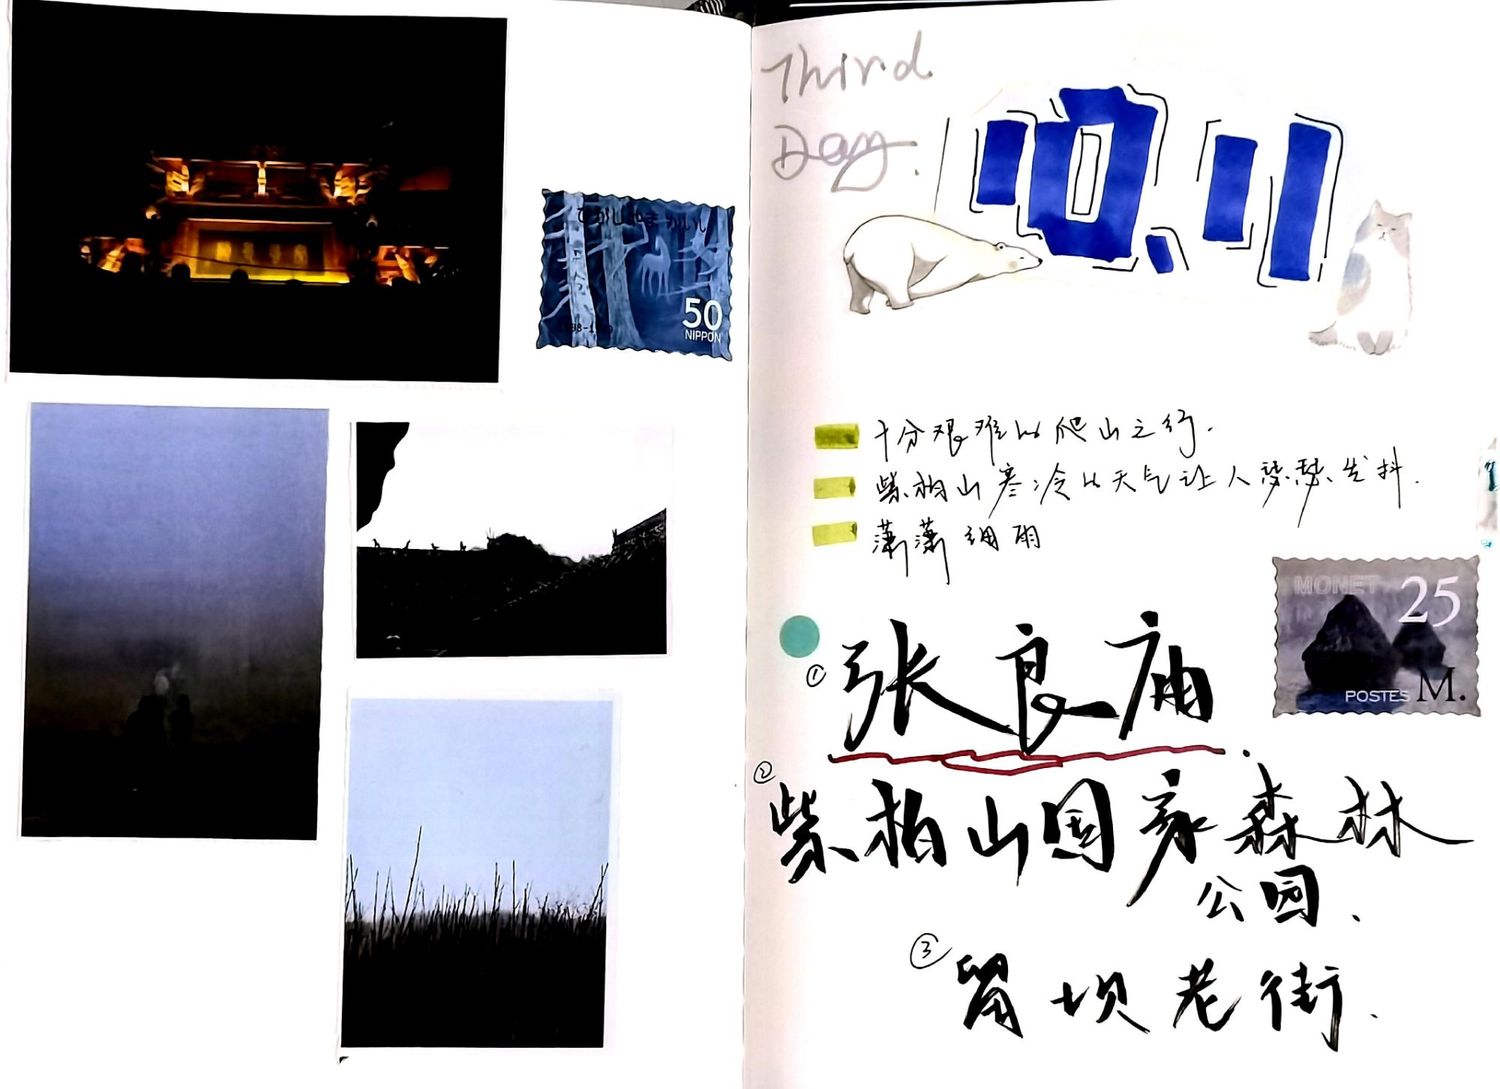 ひがしやま かいい
50
NIPPON
Third
Day.
10.11
十分艰难的爬山之行.
紫柏山寒冷的天气让人瑟瑟发抖.
潇潇细雨
MONET
25
POSTES M.
① 张良庙.
② 紫柏山国家森林
公园.
③ 留坝老街.